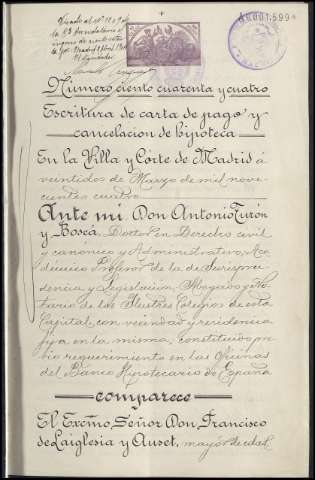 Número ciento cuarenta y cuatro
Escritura de carta de pago y
cancelacion de hipoteca
En la Villa y Córte de Madrid á
veintidos de Marzo de mil nove-
cientos cuatro
Ante mi Don Antonio Turón
y Boscá, Doctor en Derecho civil
y canónico y Administrativo, Aca-
démico Profesor de la de Jurispru-
dencia y Legislacion, Abogado y No-
tario de los Ilustres Colegios de esta
Capital, con vecindad y residencia
fija en la misma, constituido pré-
vio requerimiento en las Oficinas
del Banco Hipotecario de España
comparece
El Excmo, Señor Don Francisco
de Laiglesia y Auset, mayor de edad